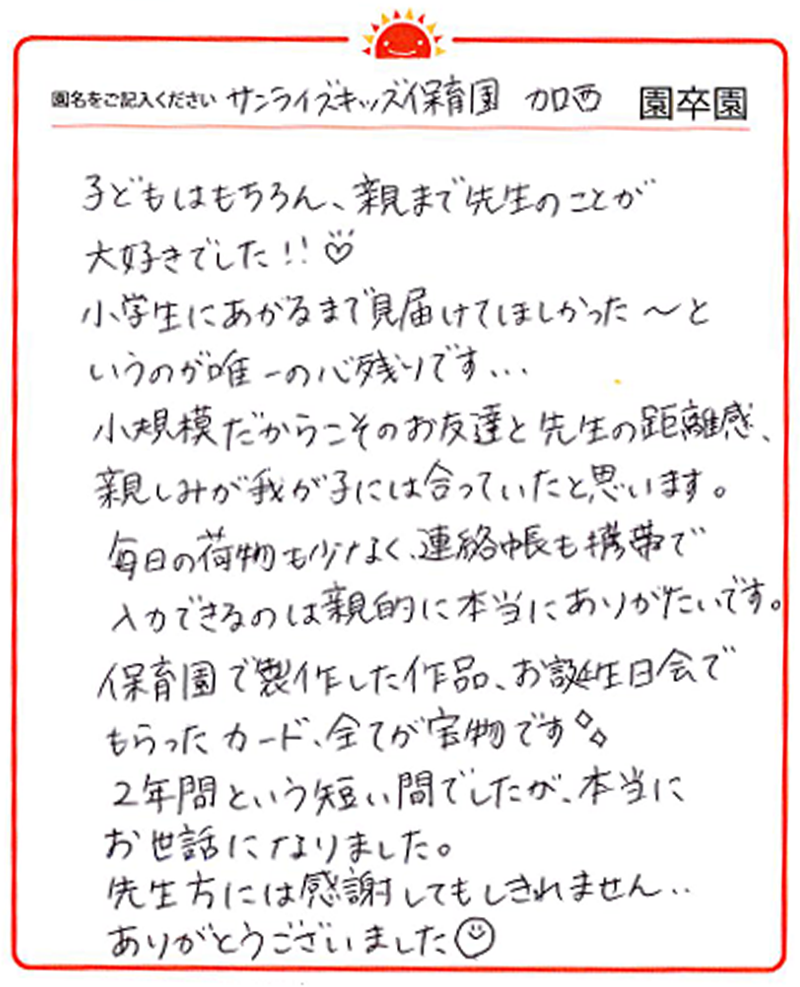 園名をご記入ください サンライズキッズ保育園 加西 園卒園
子どもはもちろん、親まで先生のことが
大好きでした!!♡
小学生にあがるまで見届けてほしかった〜と
いうのが唯一の心残りです...
小規模だからこそのお友達と先生の距離感、
親しみが我が子には合っていたと思います。
毎日の荷物も少なく、連絡帳も携帯で
入力できるのは親的に本当にありがたいです。
保育園で製作した作品、お誕生日会で
もらったカード、全てが宝物です
2年間という短い間でしたが、本当に
お世話になりました。
先生方には感謝してもしきれません..
ありがとうございました